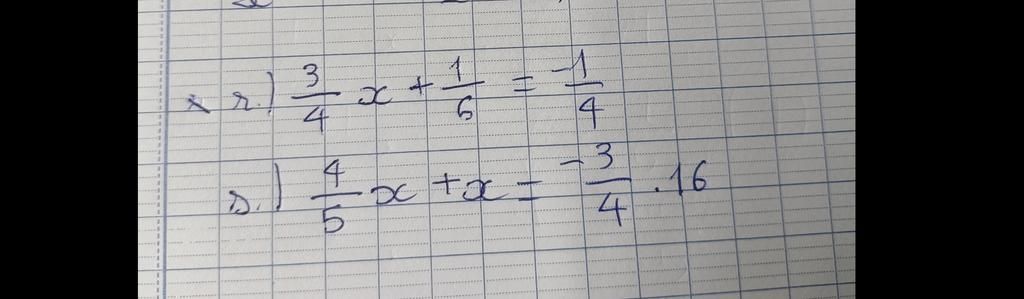 x r.) 3/4 x + 1/6 = -1/4
s.) 4/5 x + x = -3/4 . 16